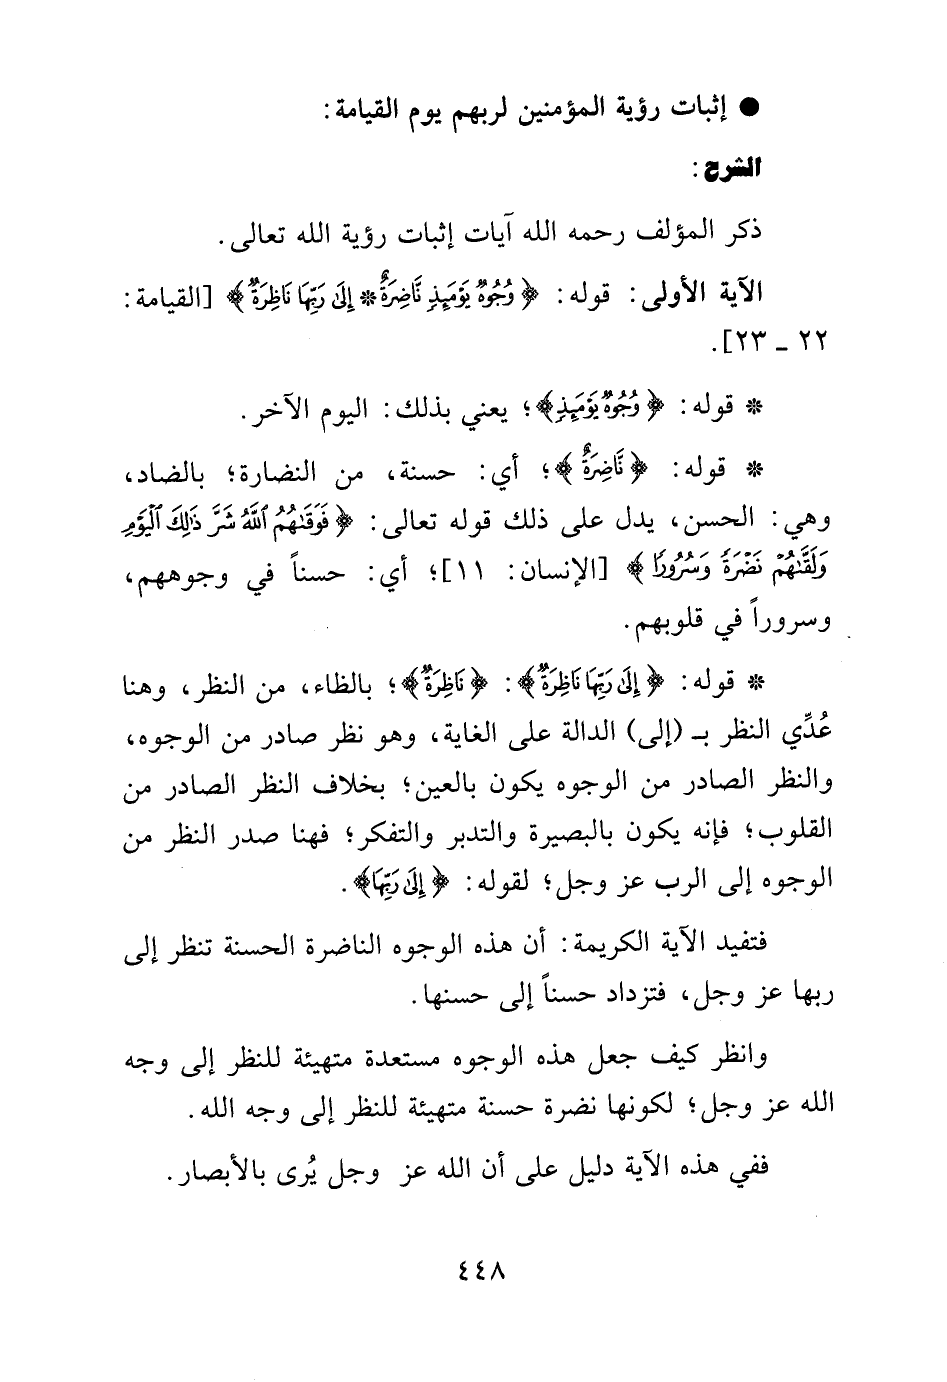 ● إثبات رؤية المؤمنين لربهم يوم القيامة:
الشرح:
ذكر المؤلف رحمه الله آيات إثبات رؤية الله تعالى.
الآية الأولى: قوله: ﴿وُجُوهٌ يَوْمَئِذٍ نَّاضِرَةٌ * إِلَىٰ رَبِّهَا نَاظِرَةٌ﴾ [القيامة:
٢٢ ـ ٢٣].
* قوله: ﴿وُجُوهٌ يَوْمَئِذٍ﴾؛ يعني بذلك: اليوم الآخر.
* قوله: ﴿نَّاضِرَةٌ﴾؛ أي: حسنة، من النضارة؛ بالضاد،
وهي: الحسن، يدل على ذلك قوله تعالى: ﴿فَوَقَىٰهُمُ ٱللَّهُ شَرَّ ذَٰلِكَ ٱلْيَوْمِ
وَلَقَّىٰهُمْ نَضْرَةً وَسُرُورًا﴾ [الإنسان: ١١]؛ أي: حسناً في وجوههم،
وسروراً في قلوبهم.
* قوله: ﴿إِلَىٰ رَبِّهَا نَاظِرَةٌ﴾: ﴿نَاظِرَةٌ﴾؛ بالظاء، من النظر، وهنا
عُدِّي النظر بـ (إلى) الدالة على الغاية، وهو نظر صادر من الوجوه،
والنظر الصادر من الوجوه يكون بالعين؛ بخلاف النظر الصادر من
القلوب؛ فإنه يكون بالبصيرة والتدبر والتفكر؛ فهنا صدر النظر من
الوجوه إلى الرب عز وجل؛ لقوله: ﴿إِلَىٰ رَبِّهَا﴾.
فتفيد الآية الكريمة: أن هذه الوجوه الناضرة الحسنة تنظر إلى
ربها عز وجل، فتزداد حسناً إلى حسنها.
وانظر كيف جعل هذه الوجوه مستعدة متهيئة للنظر إلى وجه
الله عز وجل؛ لكونها نضرة حسنة متهيئة للنظر إلى وجه الله.
ففي هذه الآية دليل على أن الله عز وجل يُرى بالأبصار.
٤٤٨